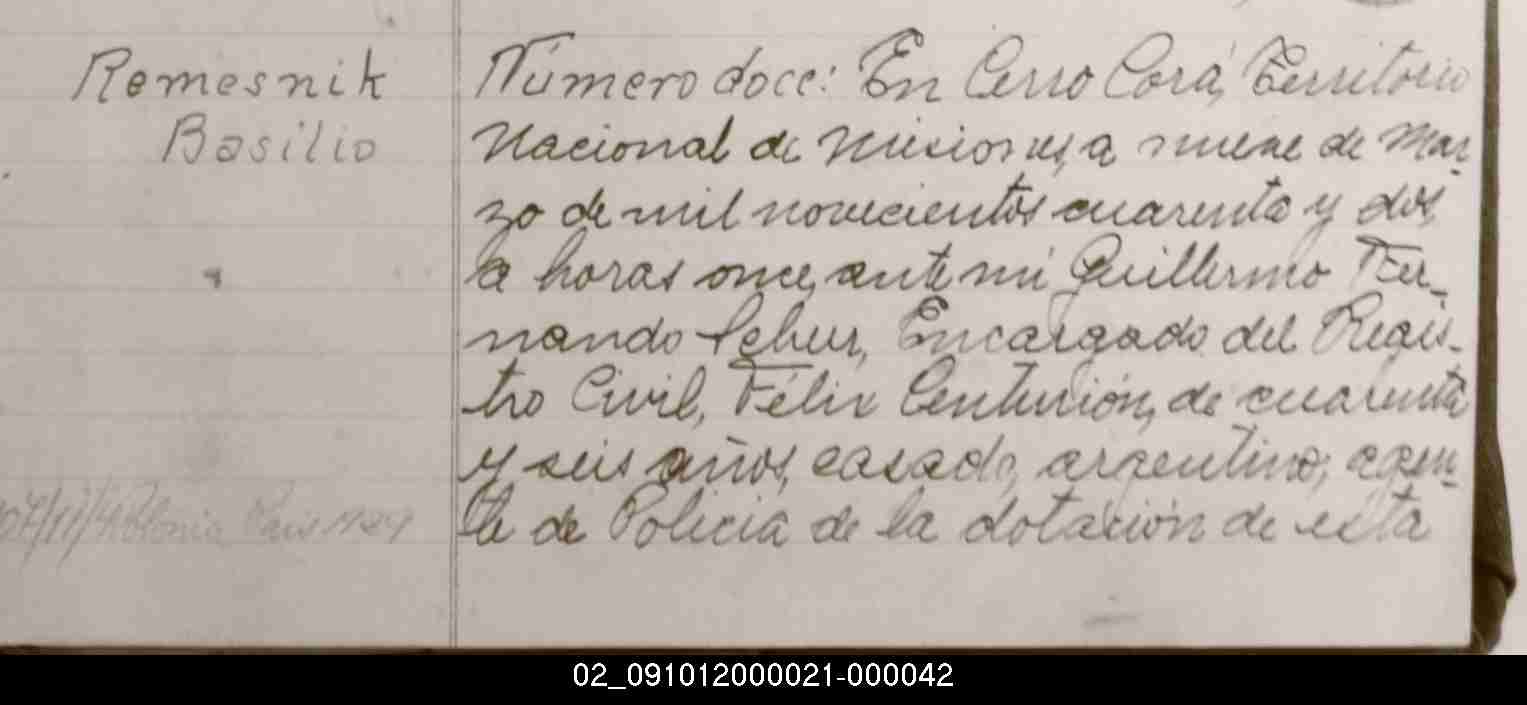 Remesnik
Basilio
Número doce: En Cerro Corá, Territorio
Nacional de Misiones, a nueve de Mar-
zo de mil novecientos cuarenta y dos,
a horas once, ante mi Guillermo Fer-
nando Schur, Encargado del Regis-
tro Civil, Félix Centurión, de cuarenta
y seis años, casado, argentino, agen-
te de Policia de la dotación de esta
02_091012000021-000042